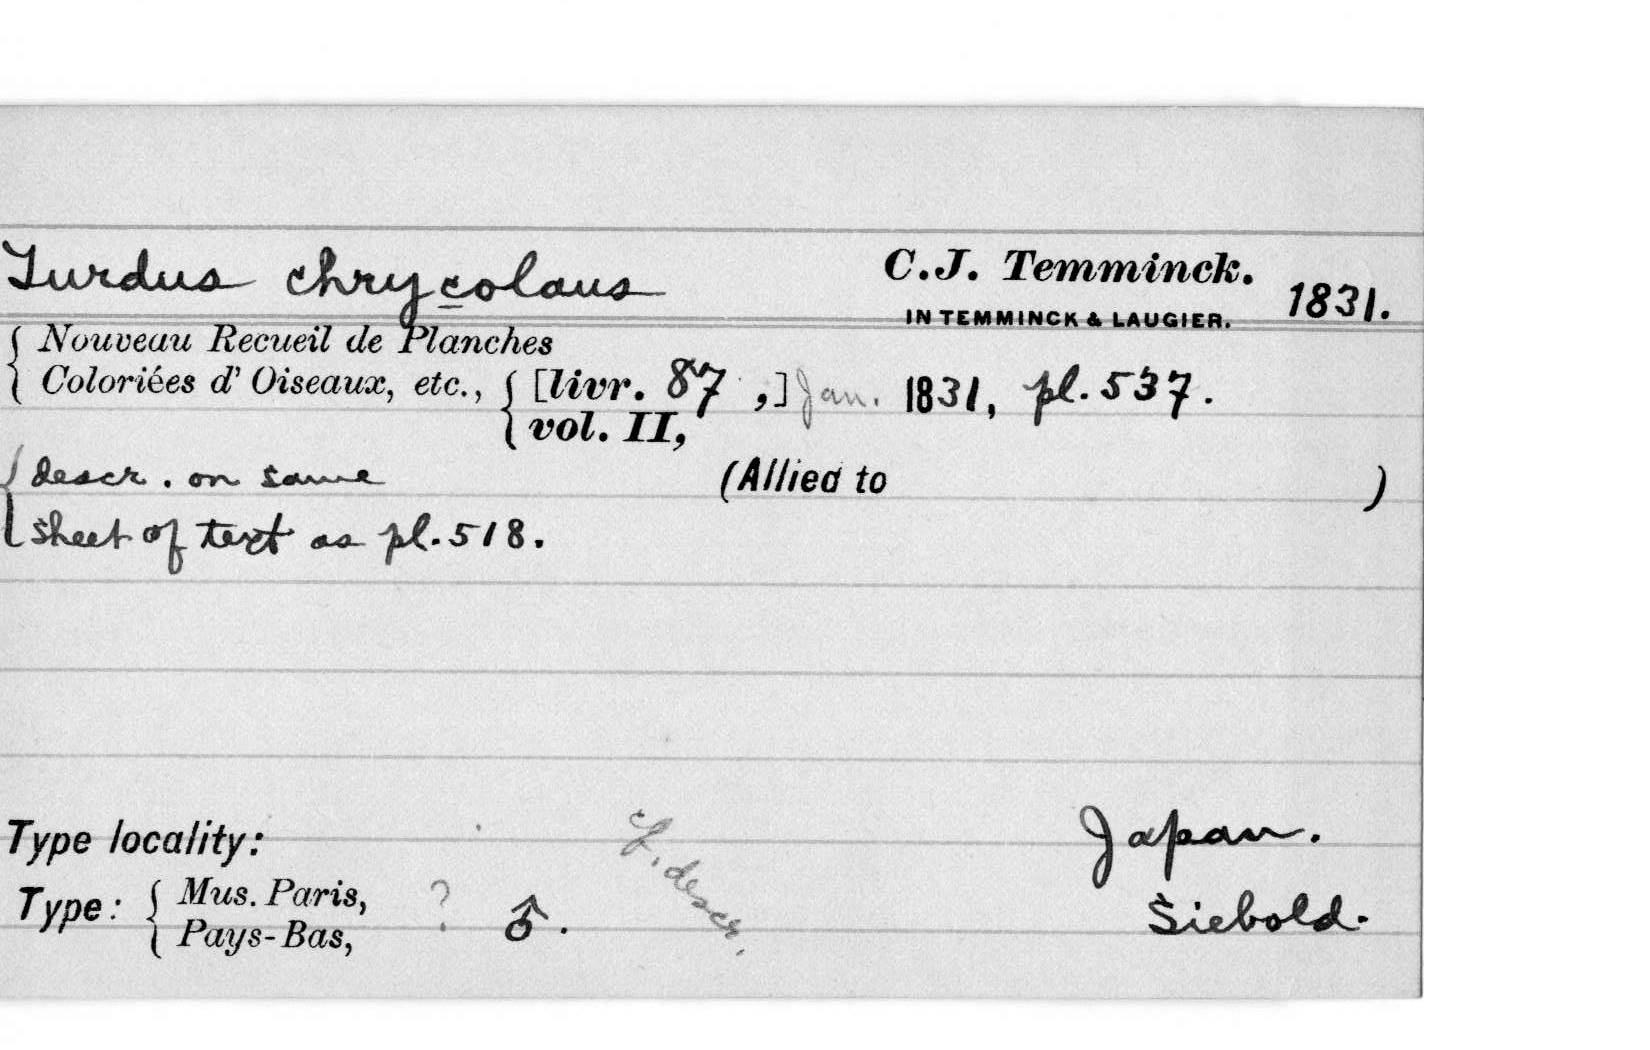 Turdus chrycolaus C.J. Temminck. 1831.
IN TEMMINCK & LAUGIER.
{ Nouveau Recueil de Planches
{ Coloriées d' Oiseaux, etc., { [livr. 87 ,] Jan. 1831, pl. 537.
{ vol. II,
{ descr. on same (Allied to )
{ sheet of text as pl. 518.
Type locality: Japan.
Type: { Mus. Paris, ? ♂. descr. Siebold.
{ Pays-Bas,